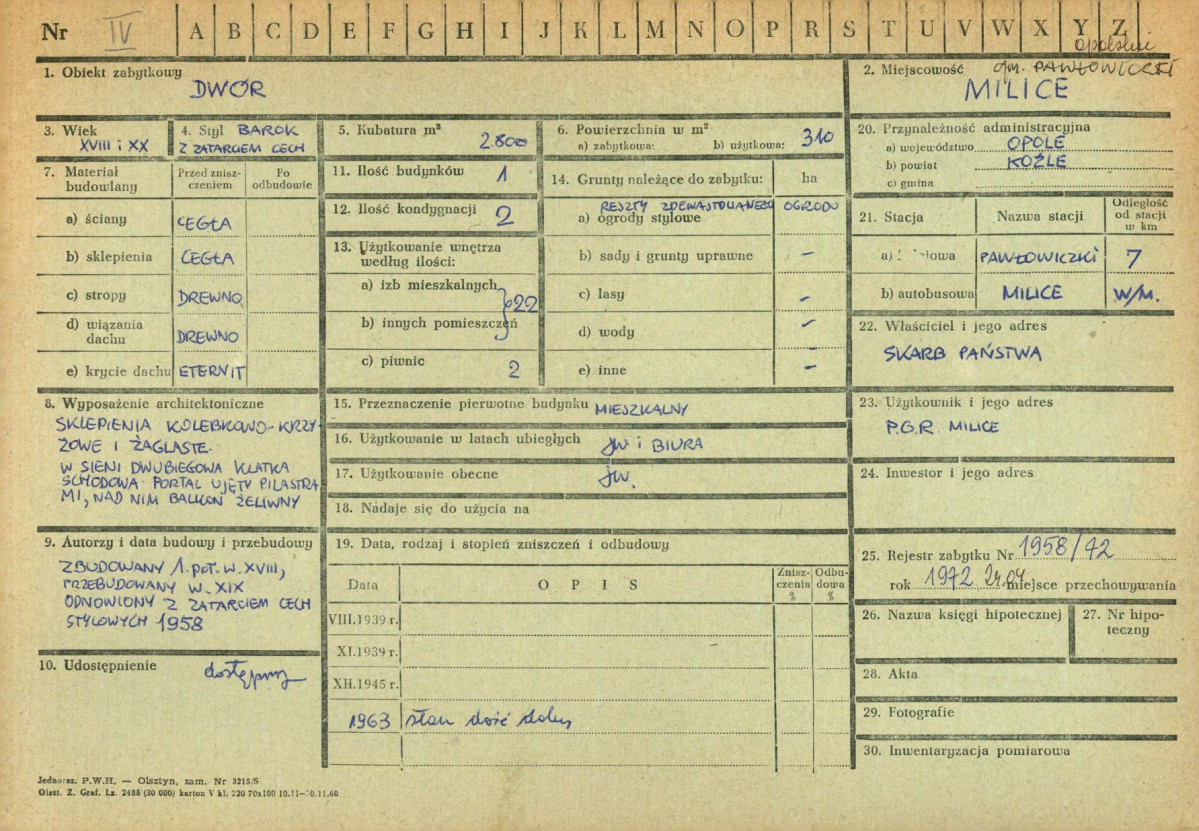 Nr IV A B C D E F G H I J K L M N O P R S T U V W X Y Z
opolskie
1. Obiekt zabytkowy
DWÓR
2. Miejscowość gm. PAWŁOWICZKI
MILICE
3. Wiek
XVIII i XX
4. Styl BAROK
Z ZATARCIEM CECH
5. Kubatura m³
2.800
6. Powierzchnia w m²
a) zabytkowa: b) użytkowa: 310
20. Przynależność administracyjna
a) województwo OPOLE
b) powiat KOŹLE
c) gmina
7. Materiał budowlany
Przed znisz-
czeniem
Po
odbudowie
a) ściany CEGŁA
b) sklepienia CEGŁA
c) stropy DREWNO
d) wiązania
dachu DREWNO
e) krycie dachu ETERNIT
11. Ilość budynków 1
12. Ilość kondygnacji 2
13. Użytkowanie wnętrza
według ilości:
a) izb mieszkalnych
22
b) innych pomieszczeń
c) piwnic 2
14. Grunty należące do zabytku: ha
RESZTY ZDEWASTOWANEGO OGRODU
a) ogrody stylowe
b) sady i grunty uprawne –
c) lasy –
d) wody –
e) inne –
21. Stacja Nazwa stacji
Odległość
od stacji
w km
a) PAWŁOWICZKI 7
b) autobusowa MILICE W/M.
22. Właściciel i jego adres
SKARB PAŃSTWA
8. Wyposażenie architektoniczne
SKLEPIENIA KOLEBKOWO-KRZY-
ŻOWE I ŻAGLASTE.
W SIENI DWUBIEGOWA KLATKA
SCHODOWA. PORTAL UJĘTY PILASTRA
MI, NAD NIM BALKON ŻELIWNY
15. Przeznaczenie pierwotne budynku MIESZKALNY
16. Użytkowanie w latach ubiegłych JW i BIURA
17. Użytkowanie obecne JW.
18. Nadaje się do użycia na
23. Użytkownik i jego adres
P.G.R. MILICE
24. Inwestor i jego adres
9. Autorzy i data budowy i przebudowy
ZBUDOWANY 1. poł. W. XVIII,
PRZEBUDOWANY W. XIX
ODNOWIONY Z ZATARCIEM CECH
STYLOWYCH 1958
10. Udostępnienie dostępny
19. Data, rodzaj i stopień zniszczeń i odbudowy
Data OPIS
Znisz-
czenia
%
Odbu-
dowa
%
VIII.1939 r.
XI.1939 r.
XII.1945 r.
1963 stan dość dobry
25. Rejestr zabytku Nr 1958/72
rok 1972 24.04 miejsce przechowywania
26. Nazwa księgi hipotecznej
27. Nr hipo-
teczny
28. Akta
29. Fotografie
30. Inwentaryzacja pomiarowa
Jednoraz. P.W.H. — Olsztyn, zam. Nr 3215/S
Olszt. Z. Graf. Lz. 2485 (30 000) karton V kl. 220 70x100 10.11—30.11.60